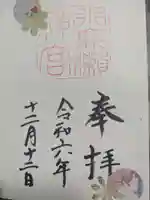 奉拝
令和六年
十二月十二日